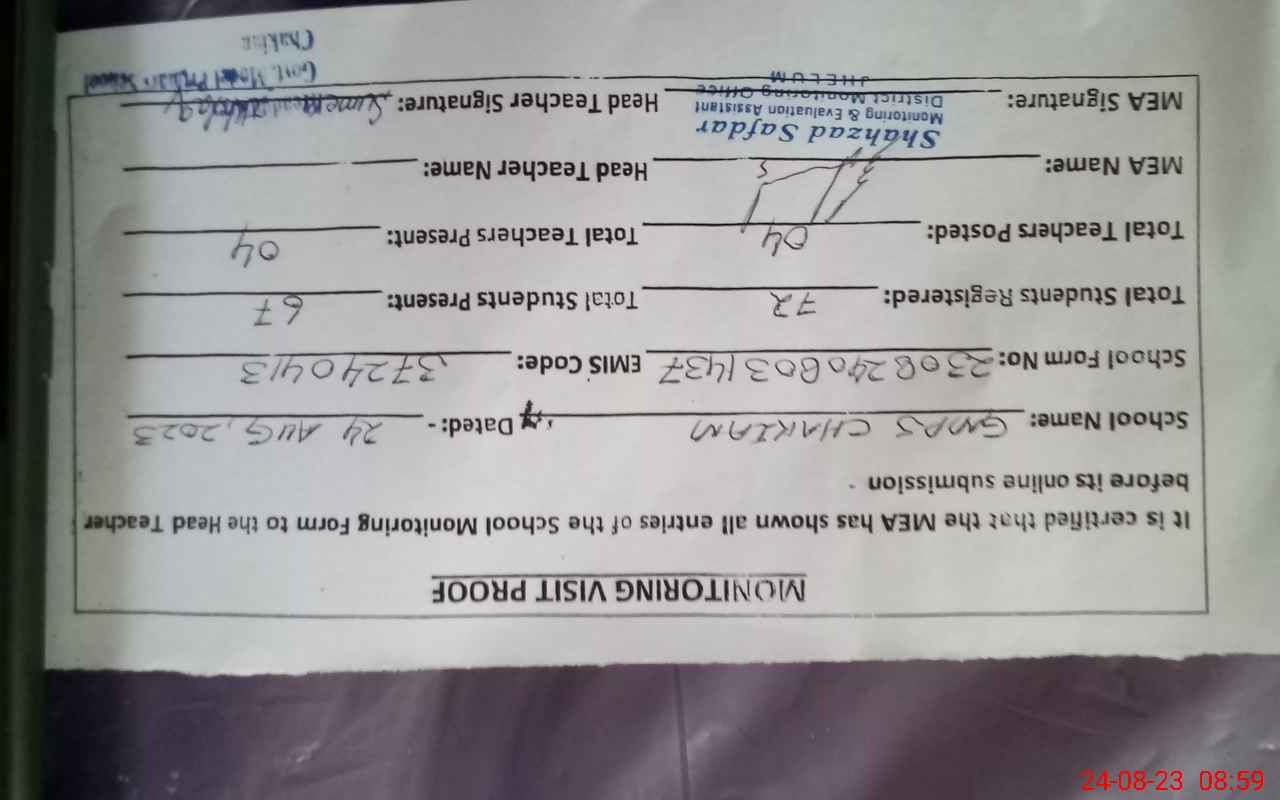 MONITORING VISIT PROOF
It is certified that the MEA has shown all entries of the School Monitoring Form to the Head Teacher
before its online submission
School Name: GMPS CHAKIAM Dated: - 24 AUG, 2023
School Form No: 23082408031437 EMIS Code: 37240413
Total Students Registered: 72 Total Students Present: 67
Total Teachers Posted: 04 Total Teachers Present: 04
MEA Name: Head Teacher Name:
Shahzad Safdar
Monitoring & Evaluation Assistant
District Monitoring Office
JHELUM
MEA Signature: Head Teacher Signature:
Govt. Model Primary School
24-08-23 08:59